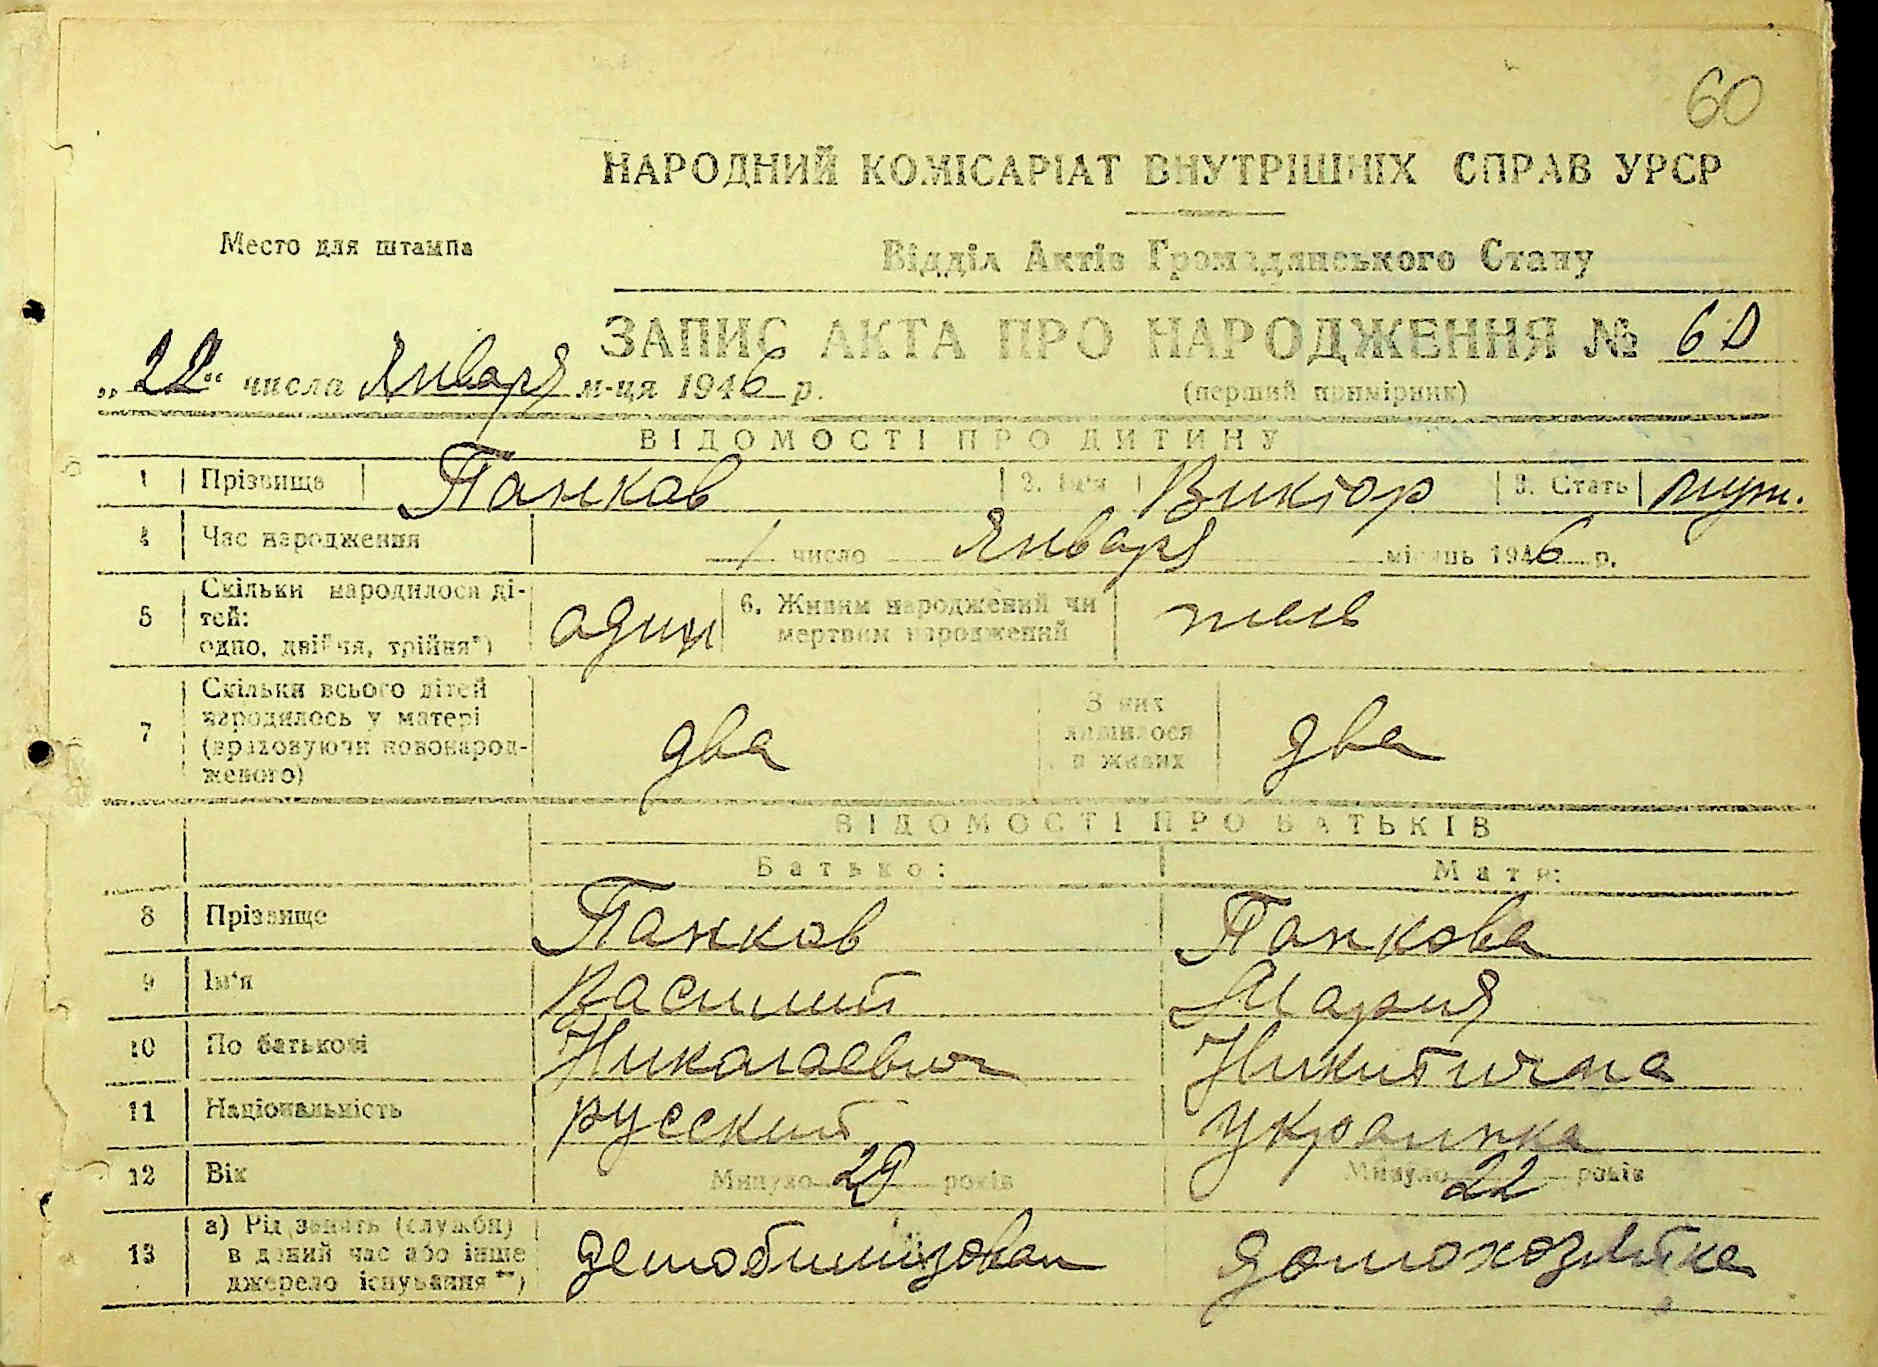 60
НАРОДНИЙ КОМІСАРІАТ ВНУТРІШНІХ СПРАВ УРСР
Место для штампа
Відділ Актів Громадянського Стану
ЗАПИС АКТА ПРО НАРОДЖЕННЯ № 60
„22“ числа Января м-ця 1946 р.
(перший примірник)
ВІДОМОСТІ ПРО ДИТИНУ
1 Прізвище Панков 2. Ім'я Виктор 3. Стать муж.
4 Час народження 1 число Января місяць 1946 р.
5 Скільки народилося ді-
тей:
одно, двійня, трійня*) один 6. Живим народжений чи
мертвим народжений
7 Скільки всього дітей
народилось у матері
(враховуючи новонарод-
женого) два З них
лишилося
в живих два
ВІДОМОСТІ ПРО БАТЬКІВ
Батько: Мати:
8 Прізвище Панков Панкова
9 Ім'я Василий Мария
10 По батькові Николаевич Никитична
11 Національність русский украинка
12 Вік Минуло 29 років Минуло 22 років
13 а) Рід занять (служби)
в даний час або інше
джерело існування**) демобилизован домохозяйка